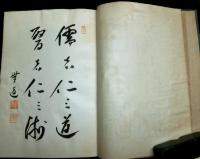 儒者仁之道
醫者仁之術